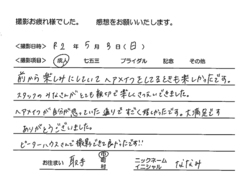 撮影お疲れ様でした。 感想をお願いいたします。
撮影日時 R2年5月3日(日)
撮影項目 成人 七五三 ブライダル 記念 その他
前から楽しみにしていてヘアメイクをしてるときも楽しかったです。
スタッフのみなさんがとても親切で楽しくさせていただきました。
ヘアメイクが自分が思っていた通りですごく嬉しかったです。大満足です
ありがとうございました。
ピーターハウスさんで撮影できて良かったです!!
お住まい 取手 市 ニックネーム イニシャル ななみ